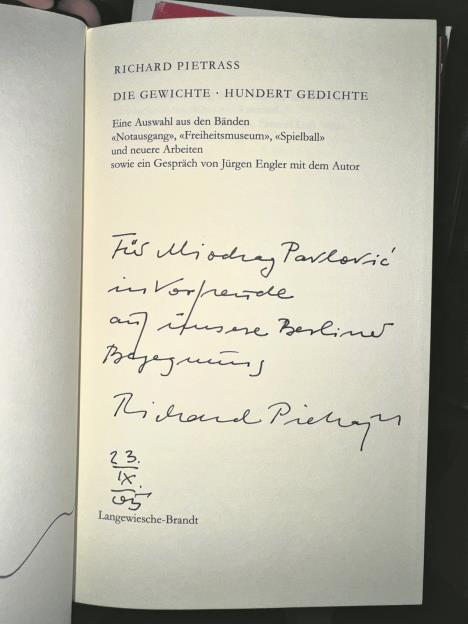 RICHARD PIETRASS
DIE GEWICHTE · HUNDERT GEDICHTE
Eine Auswahl aus den Bänden
«Notausgang», «Freiheitsmuseum», «Spielball»
und neuere Arbeiten
sowie ein Gespräch von Jürgen Engler mit dem Autor
Für Miodrag Pavlović
in Vorfreude
auf unsere Berliner
Begegnung
Richard Pietraß
23.
IX.
05
Langewiesche-Brandt